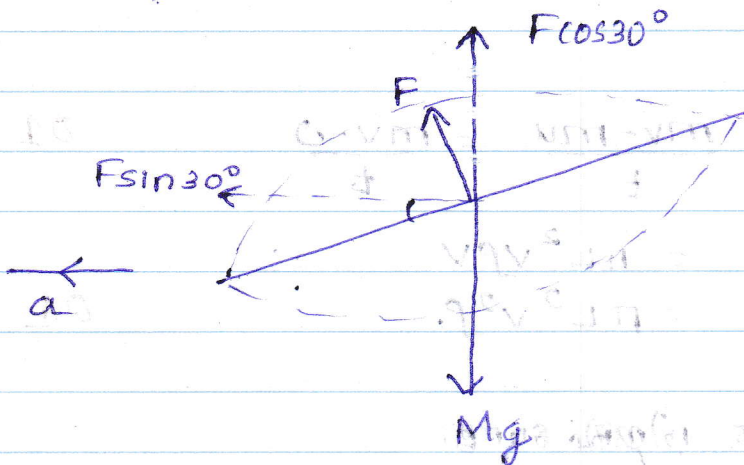 Fcos30°
F
Fsin30°
a
Mg